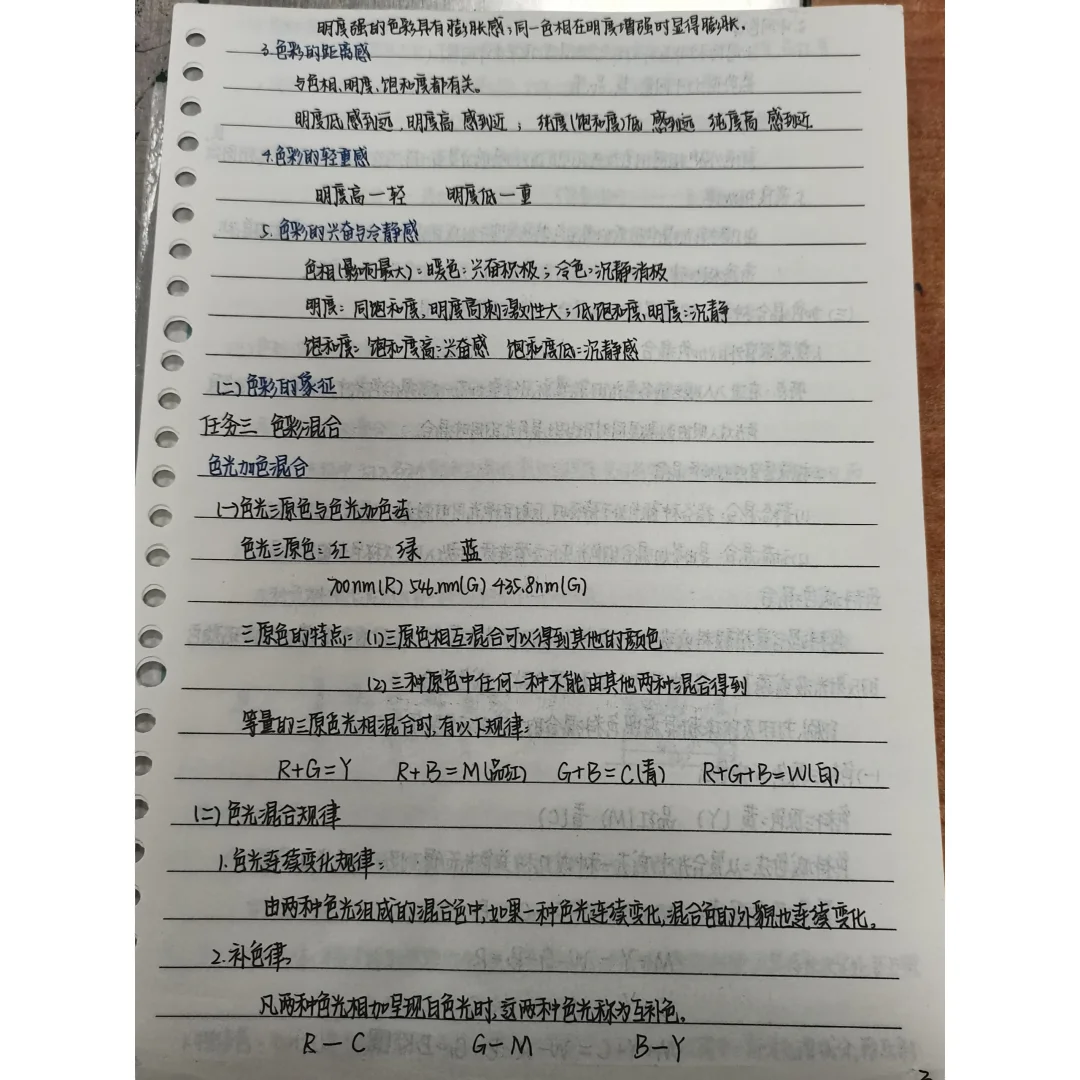 明度强的色彩具有膨胀感;同一色相在明度增强时显得膨胀.
3.色彩的距离感
与色相、明度、饱和度都有关。
明度低 感到远,明度高 感到近; 纯度(饱和度)低 感到远 纯度高 感到近.
4.色彩的轻重感
明度高一轻 明度低一重
5.色彩的兴奋与冷静感
色相(影响最大):暖色:兴奋积极;冷色:沉静消极
明度:同饱和度,明度高刺激性大;低饱和度,明度:沉静
饱和度:饱和度高:兴奋感 饱和度低:沉静感
(二)色彩的象征
任务三 色彩混合
色光加色混合
(一)色光三原色与色光加色法
色光三原色:红 绿 蓝
700nm(R) 546.nm(G) 435.8nm(G)
三原色的特点:(1)三原色相互混合可以得到其他的颜色
(2)三种原色中任何一种不能由其他两种混合得到
等量的三原色光相混合时,有以下规律:
R+G=Y R+B=M(品红) G+B=C(青) R+G+B=W(白)
(二)色光混合规律
1.色光连续变化规律:
由两种色光组成的混合色中,如果一种色光连续变化,混合色的外貌也连续变化。
2.补色律。
凡两种色光相加呈现白色光时,这两种色光称为互补色。
R－C G－M B－Y